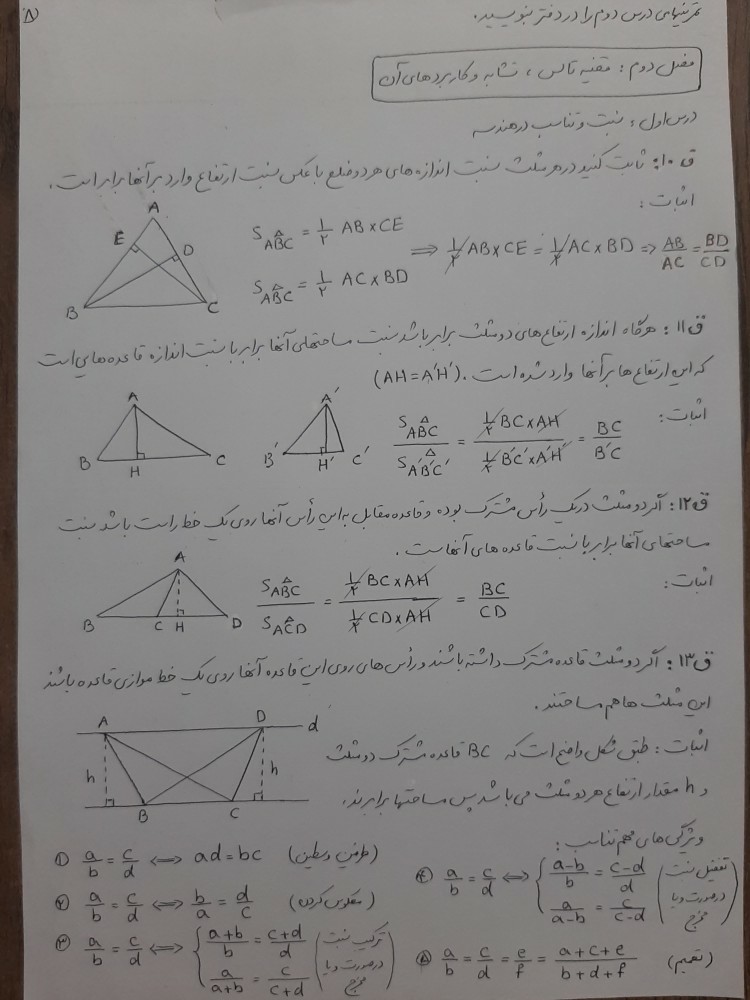 ۸
تمرینهای درس دوم را در دفتر بنویسید.
فصل دوم: قضیه تالس، تشابه و کاربردهای آن
درس اول: نسبت و تناسب در هندسه
ق۱۰: ثابت کنید در هر مثلث نسبت اندازه های هر دو ضلع با عکس نسبت ارتفاع وارد بر آنها برابر است.
اثبات:
A E D B C
S ABC△ = 1/۲ AB×CE
S ABC△ = 1/۲ AC×BD
⇒ 1/۲ AB×CE = 1/۲ AC×BD ⇒ AB/AC = BD/CD
ق۱۱: هرگاه اندازه ارتفاع های دو مثلث برابر باشد نسبت مساحتهای آنها برابر با نسبت اندازه قاعده هایی است
که این ارتفاع ها بر آنها وارد شده است. (AH=A'H')
اثبات:
A B H C A' B' H' C'
S ABC△ / S A'B'C'△ = 1/۲ BC×AH / 1/۲ B'C'×A'H' = BC / B'C
ق۱۲: اگر دو مثلث در یک رأس مشترک بوده و قاعده مقابل به این رأس آنها روی یک خط راست باشد نسبت
مساحتهای آنها برابر با نسبت قاعده های آنهاست.
اثبات:
A B C H D
S ABC△ / S ACD△ = 1/۲ BC×AH / 1/۲ CD×AH = BC / CD
ق۱۳: اگر دو مثلث قاعده مشترک داشته باشند و رأس های روی این قاعده آنها روی یک خط موازی قاعده باشند
این مثلث ها هم مساحتند.
A D d h h B C
اثبات: طبق شکل واضح است که BC قاعده مشترک دو مثلث
و h مقدار ارتفاع هر دو مثلث می باشد پس مساحتها برابرند.
ویژگی های مهم تناسب:
① a/b = c/d ⇔ ad=bc (طرفین وسطین)
② a/b = c/d ⇔ b/a = d/c (معکوس کردن)
③ a/b = c/d ⇔ { a+b/b = c+d/d a/a+b = c/c+d (ترکیب نسبت در صورت و یا مخرج)
④ a/b = c/d ⇔ { a-b/b = c-d/d a/a-b = c/c-d (تفضیل نسبت در صورت و یا مخرج)
⑤ a/b = c/d = e/f = a+c+e/b+d+f (تعمیم)